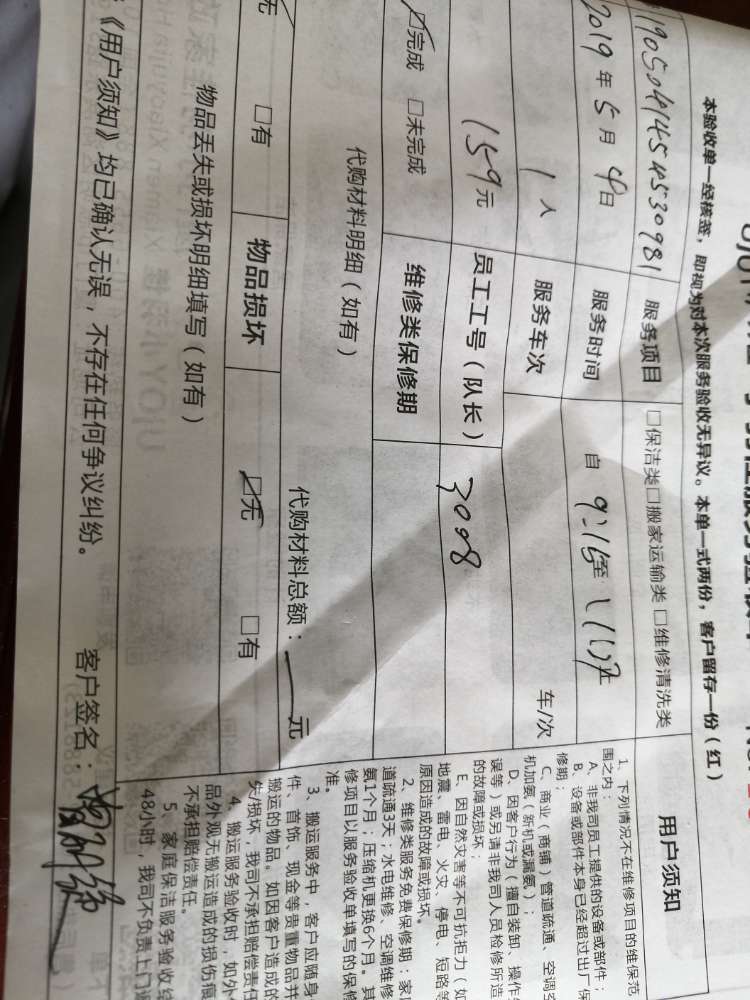 本验收单一经核签，即视为对本次服务验收无异议。本单一式两份，客户留存一份（红）
服务项目 □保洁类□搬家运输类□维修清洗类
2019年5月4日 服务时间 自 9:15至
1人 服务车次 车/次
159元 员工工号（队长） 3008
☑完成 □未完成 维修类保修期
代购材料明细（如有） 代购材料总额： 元
无 □有 物品损坏 ☑无 □有
物品丢失或损坏明细填写（如有）
《用户须知》均已确认无误，不存在任何争议纠纷。 客户签名：
用户须知
1、下列情况不在维修项目的维保范
围之内：
A、非我司员工提供的设备或部件；
B、设备或部件本身已经超过出厂保
修期；
C、商业（商铺）管道疏通、空调空
机加氨（新机或漏氨）；
D、因客户行为（擅自装卸、操作失
误等）或另请非我司人员检修所造
的故障或损坏；
E、因自然灾害等不可抗拒力（如
地震、雷电、火灾、停电、短路等
原因造成的故障或损坏。
2、维修类服务免费保修期：家
道疏通3天；水电维修、空调维修
氨1个月；压缩机更换6个月。其
修项目以服务验收单填写的保修
准。
3、搬运服务中，客户应随身
件、首饰、现金等贵重物品并
搬运的物品。如因客户造成的
失/损坏，我司不承担赔偿责任
4、搬运服务验收时，如外
品外观无搬运造成的损伤痕
不承担赔偿责任。
5、家庭保洁服务验收
48小时，我司不负责上门